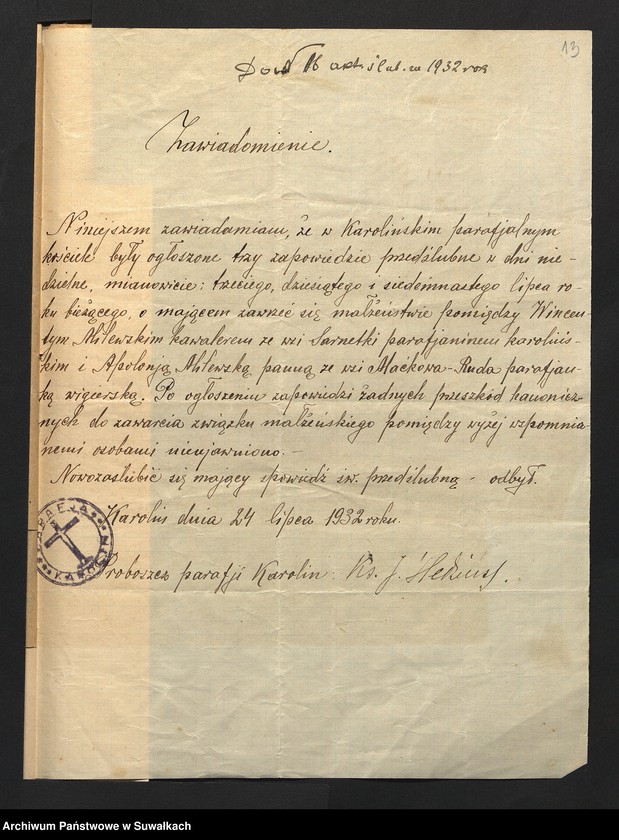 13
Dow № 16 akt. ślub. za 1932 rok
Zawiadomienie.
Niniejszem zawiadamiam, że w Karolińskim parafjalnym
kościele były ogłoszone trzy zapowiedzie przedślubne w dni nie-
dzielne, mianowicie: trzeciego, dziesiątego i siedemnastego lipca ro-
ku bieżącego, o mającem zawrzeć się małżeństwie pomiędzy Wincen-
tym Milewskim kawalerem ze wsi Sarnetki parafjaninem karoliń-
skim i Apolonją Milewską panną ze wsi Maćkowa-Ruda parafjan-
ką wigierską. Po ogłoszeniu zapowiedzi żadnych przeszkód kanonicz-
nych do zawarcia związku małżeńskiego pomiędzy wyżej wspomnia-
nemi osobami nieujawniono. -
Nowozaślubić się mający spowiedź św. przedślubną - odbył.
Karolin dnia 24 lipca 1932 roku.
PARAFJA KAROLIN
Proboszcz parafji Karolin: Ks. J.
Archiwum Państwowe w Suwałkach